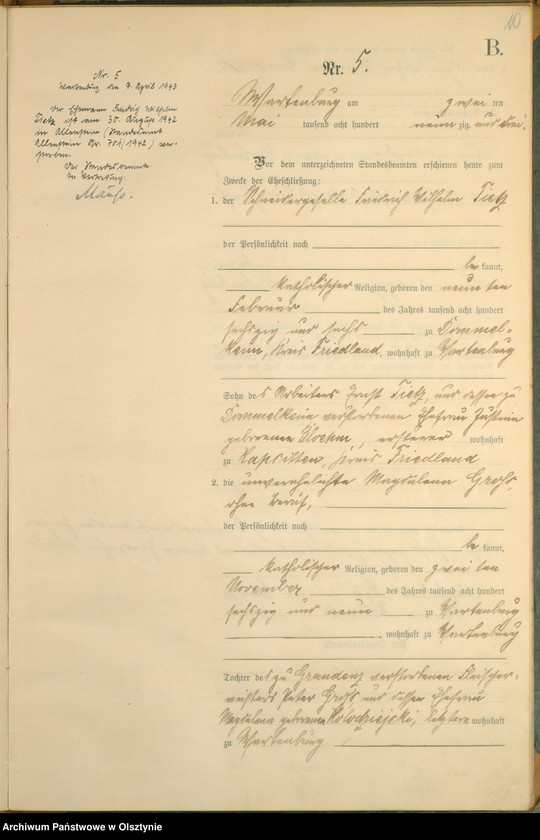 10
B.
Nr. 5.
Nr. 5
Wartenburg den 7. April 1943
Der Ehemann Friedrich Wilhelm
Tietz ist am 30. August 1942
in Allenstein (Standesamt
Allenstein Nr. 751/1942) ver-
storben.
Der Standesbeamte
In Vertretung:
Wartenburg am zwei ten
Mai tausend acht hundert neun zig und drei.
Vor dem unterzeichneten Standesbeamten erschienen heute zum
Zwecke der Eheschließung:
1. der Schneidergeselle Friedrich Wilhelm Tietz
der Persönlichkeit nach
be kannt,
katholischer Religion, geboren den neun ten
Februar des Jahres tausend acht hundert
sechszig und sechs zu Dommel-
keim, Kreis Friedland, wohnhaft zu Wartenburg
Sohn des Arbeiters Ernst Tietz, und dessen zu
Dommelkeim verstorbenen Ehefrau Justine
geborenen Bloehm, ersterer wohnhaft
zu Kapsitten, Kreis Friedland
2. die unverehelichte Magdalena Groß,
ohne Beruf,
der Persönlichkeit nach
be kannt,
katholischer Religion, geboren den zwei ten
November des Jahres tausend acht hundert
sechszig und neun zu Wartenburg
, wohnhaft zu Wartenburg
Tochter des zu Graudenz verstorbenen Fleischer-
meisters Peter Groß und dessen Ehefrau
Magdalena geborene Kolodziejski, letztere wohnhaft
zu Wartenburg.
Archiwum Państwowe w Olsztynie